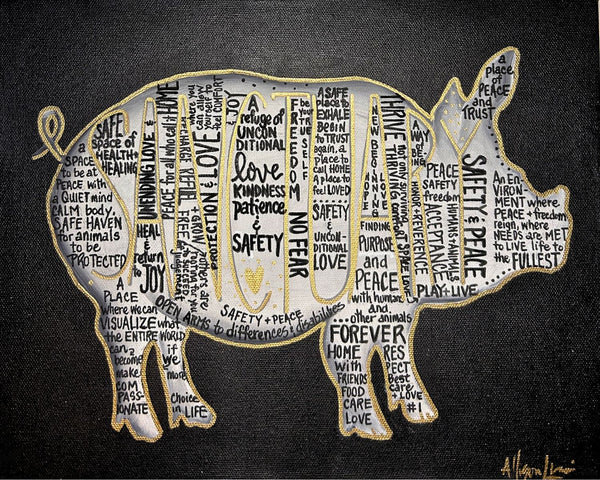 SANCTUARY
SAFE
space of
HEALTH +
HEALING
a
SPACE
to be at
PEACE with
a QUIET mind
CALM body.
SAFE HAVEN
for animals
to be
PROTECTED
UNENDING LOVE &
HEAL &
return
to
JOY
PEACE for all who call it HOME
where you
can allow
yourself to
feel COMFORT
& JOY
PROTECTION & LOVE
A
refuge of
UNCON
DITIONAL
love
KINDNESS
patience
&
SAFETY
FREEDOM
be your
TRUE SELF
NO FEAR
A SAFE
place to
EXHALE
BEGIN
to TRUST
again, a
place to
call HOME
A place to
feel LOVED
SAFETY
&
UNCON-
DITIONAL
LOVE
NEW BEGINNING
FINDING
PURPOSE
and
PEACE
with humans
and
other animals
THRIVE
not only surviving
A
WAY of
BEING
HONOR & REVERENCE
PEACE
SAFETY
freedom
ACCEPTANCE
HUMANS & ANIMALS
PLAY + LIVE
SAFETY & PEACE
a
place
of
PEACE
and
TRUST
An EN
VIRON-
MENT where
PEACE + freedom
reign, where
NEEDS are MET
to LIVE life to
the FULLEST
SAFETY + PEACE
OPEN ARMS to differences & disabilities
A
PLACE
where we can
VISUALIZE what
the ENTIRE WORLD
can
become
make
COM
PASS-
IONATE
if
we
more
Choice
in LIFE
...FOREVER
HOME
with
FRIENDS
FOOD
CARE
LOVE
RES
PECT
Best
care
+ LOVE
#1